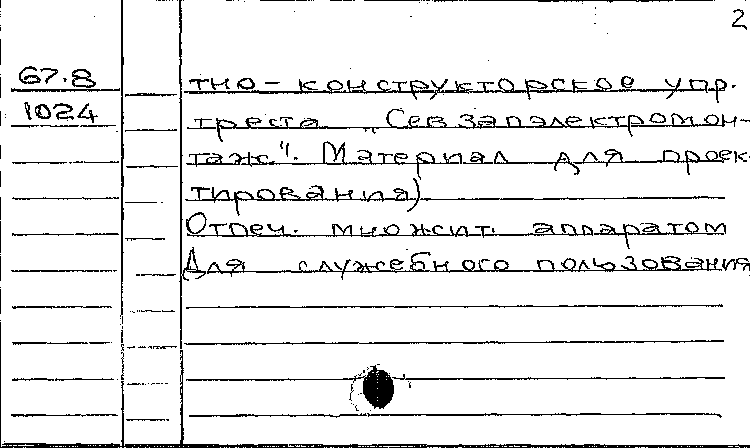 2
67.8
1024
тно-конструкторское упр.
треста „Севзапэлектромон-
таж". Материал для проек-
тирования)
Отпеч. множит. аппаратом
Для служебного пользования